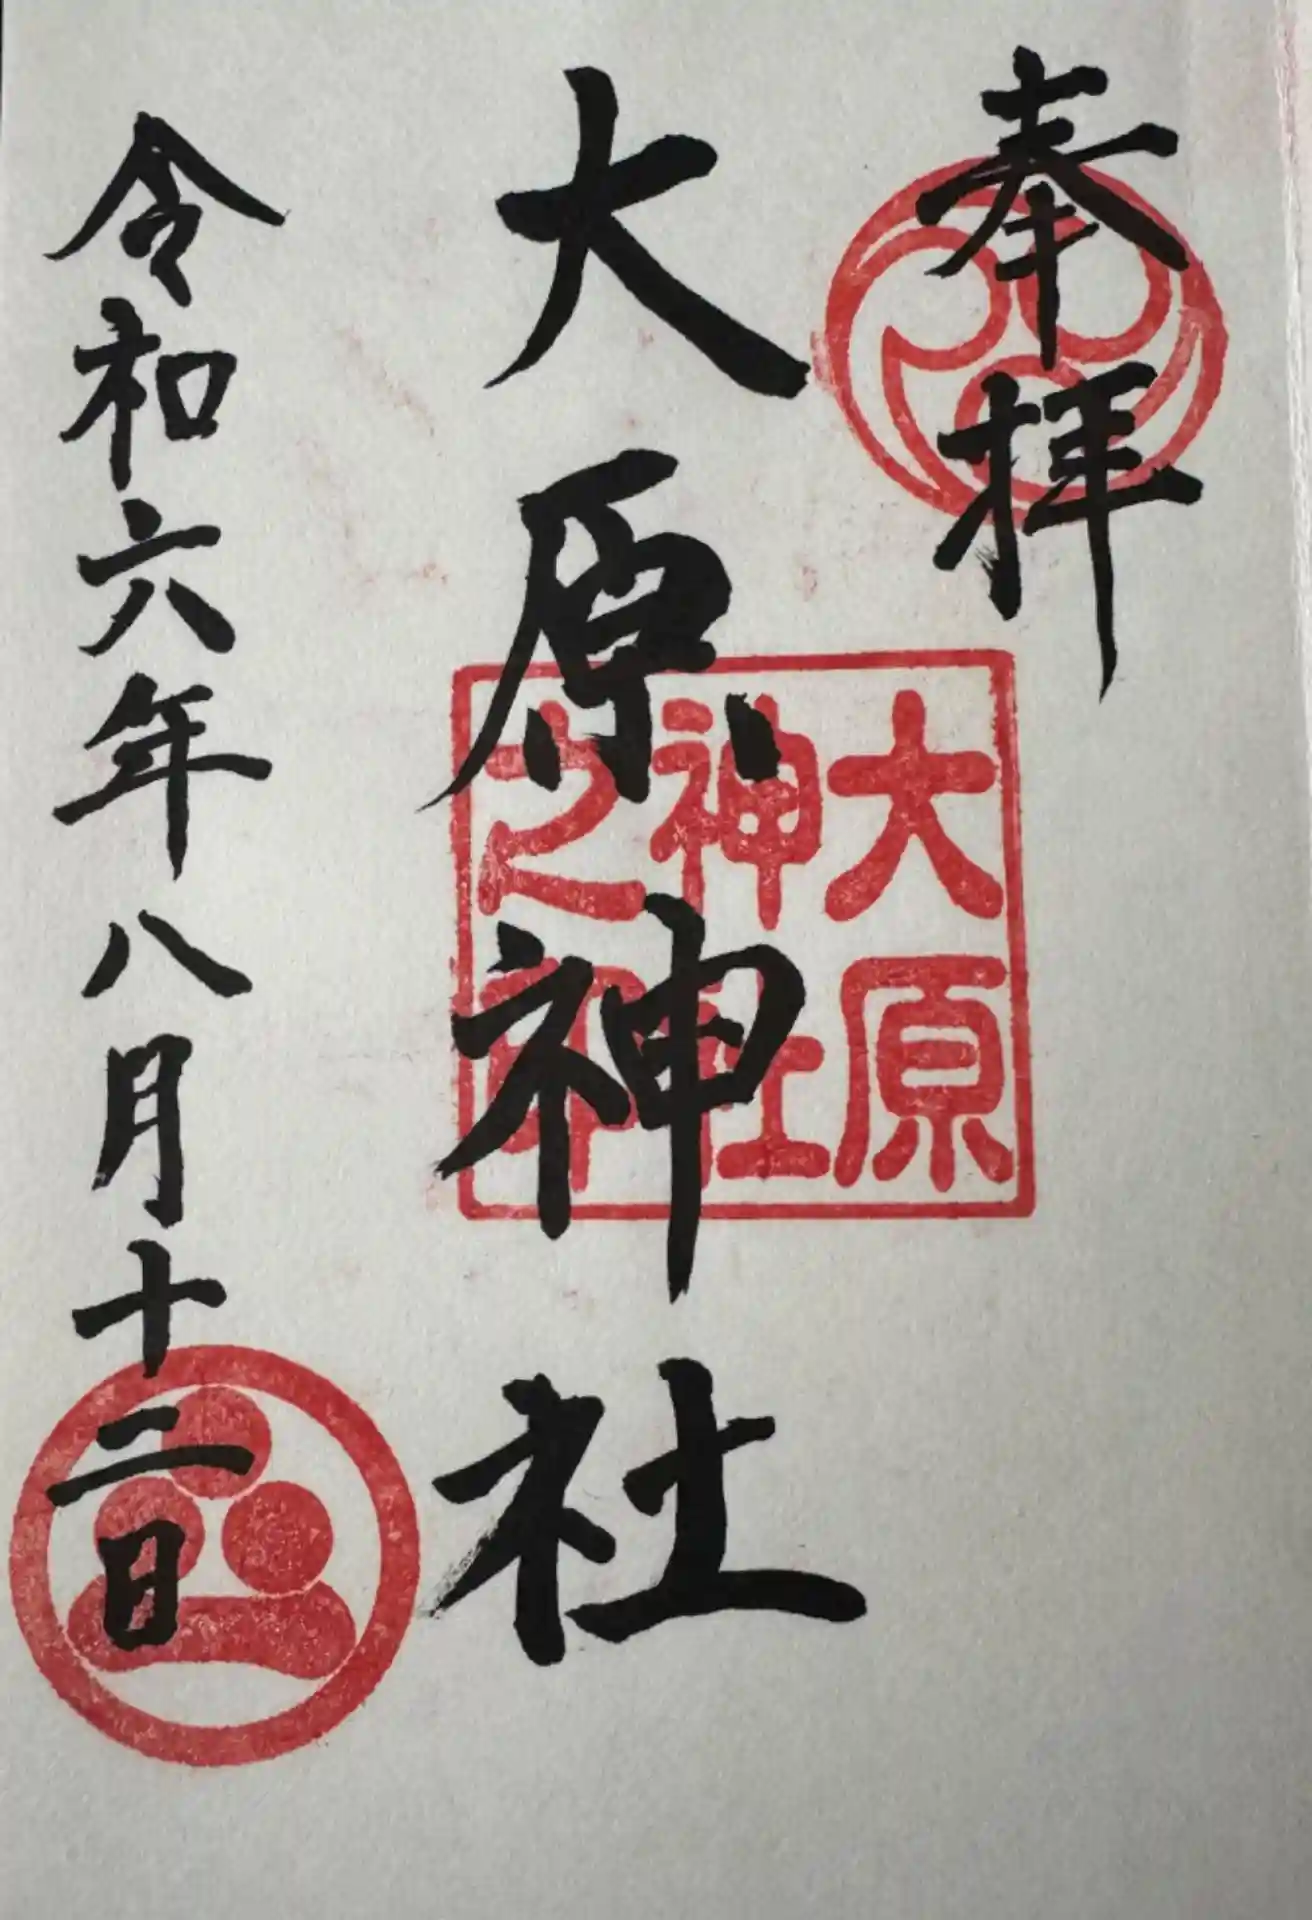 奉拝
大原神社
大原神社之印
令和六年八月十二日